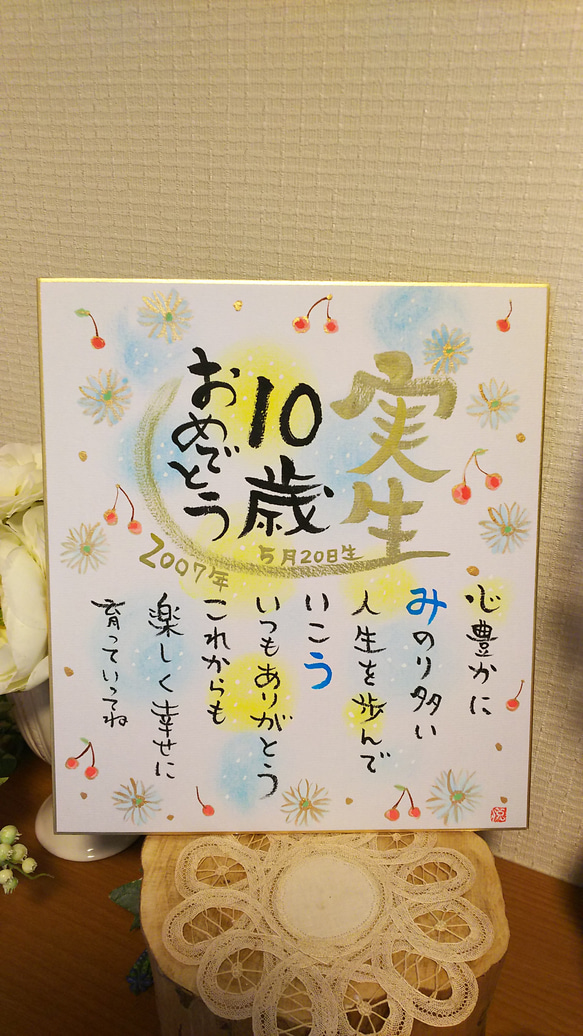 実生
10歳
おめでとう
2007年
5月20日生
心豊かに
みのり多い
人生を歩んで
いこう
いつもありがとう
これからも
楽しく幸せに
育っていってね